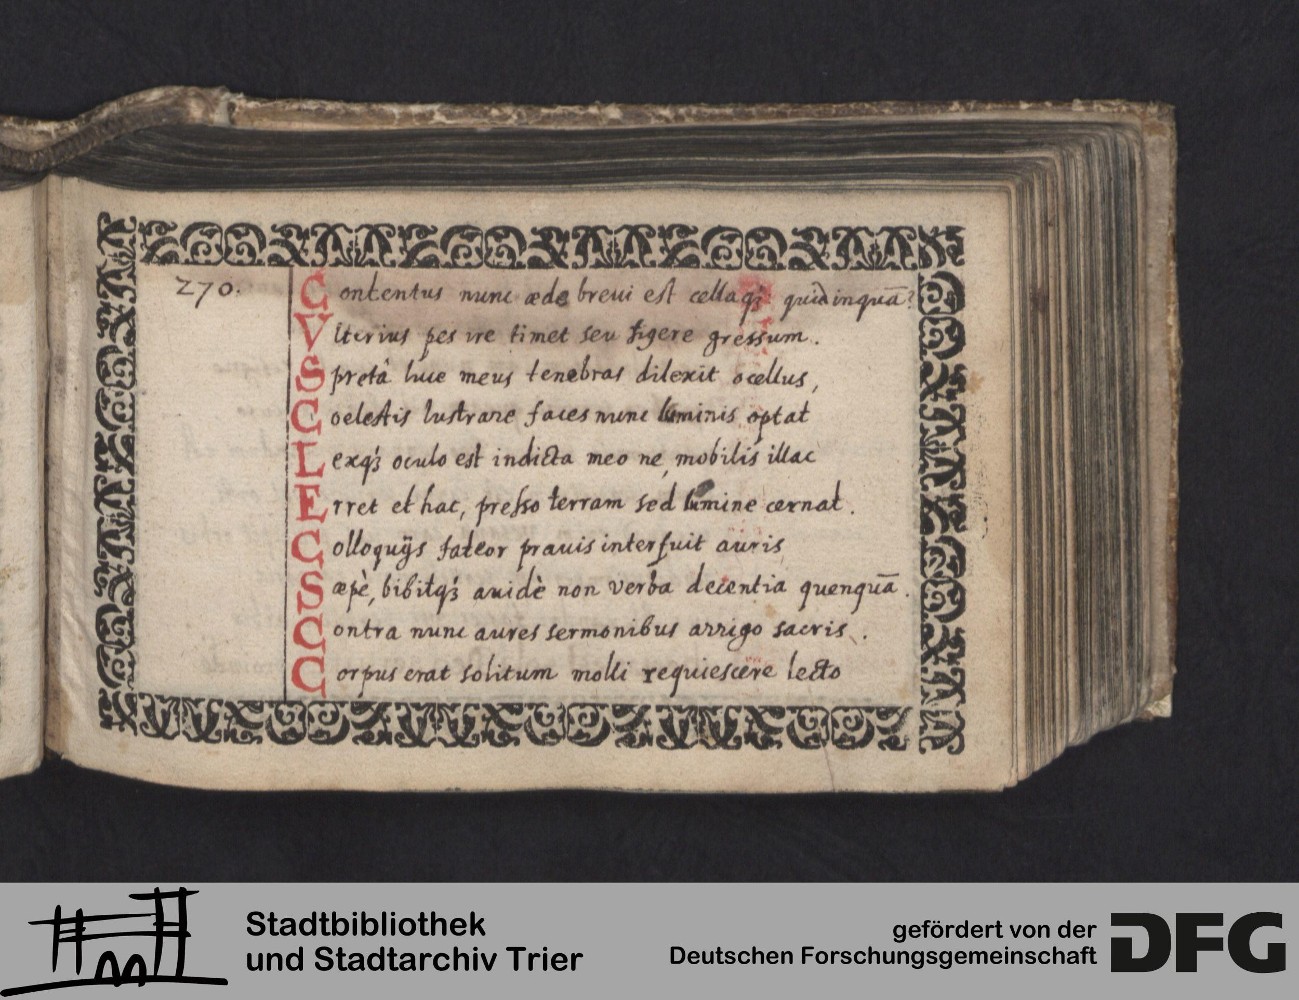 270.
Contentus nunc æde breui est cellaqꝫ quid inquā?
Vlterius pes ire timet seu figere gressum.
Spretâ luce meus tenebras dilexit ocellus,
Coelestis lustrare faces nunc luminis optat
Lexqꝫ oculo est indicta meo ne mobilis illac
Erret et hac, presso terram sed lumine cernat.
Colloquijs fateor prauis interfuit auris
Sæpè, bibitqꝫ auidè non verba decentia quenquā.
Contra nunc aures sermonibus arrigo sacris.
Corpus erat solitum molli requiescere lecto
Stadtbibliothek
und Stadtarchiv Trier
gefördert von der
Deutschen Forschungsgemeinschaft
DFG